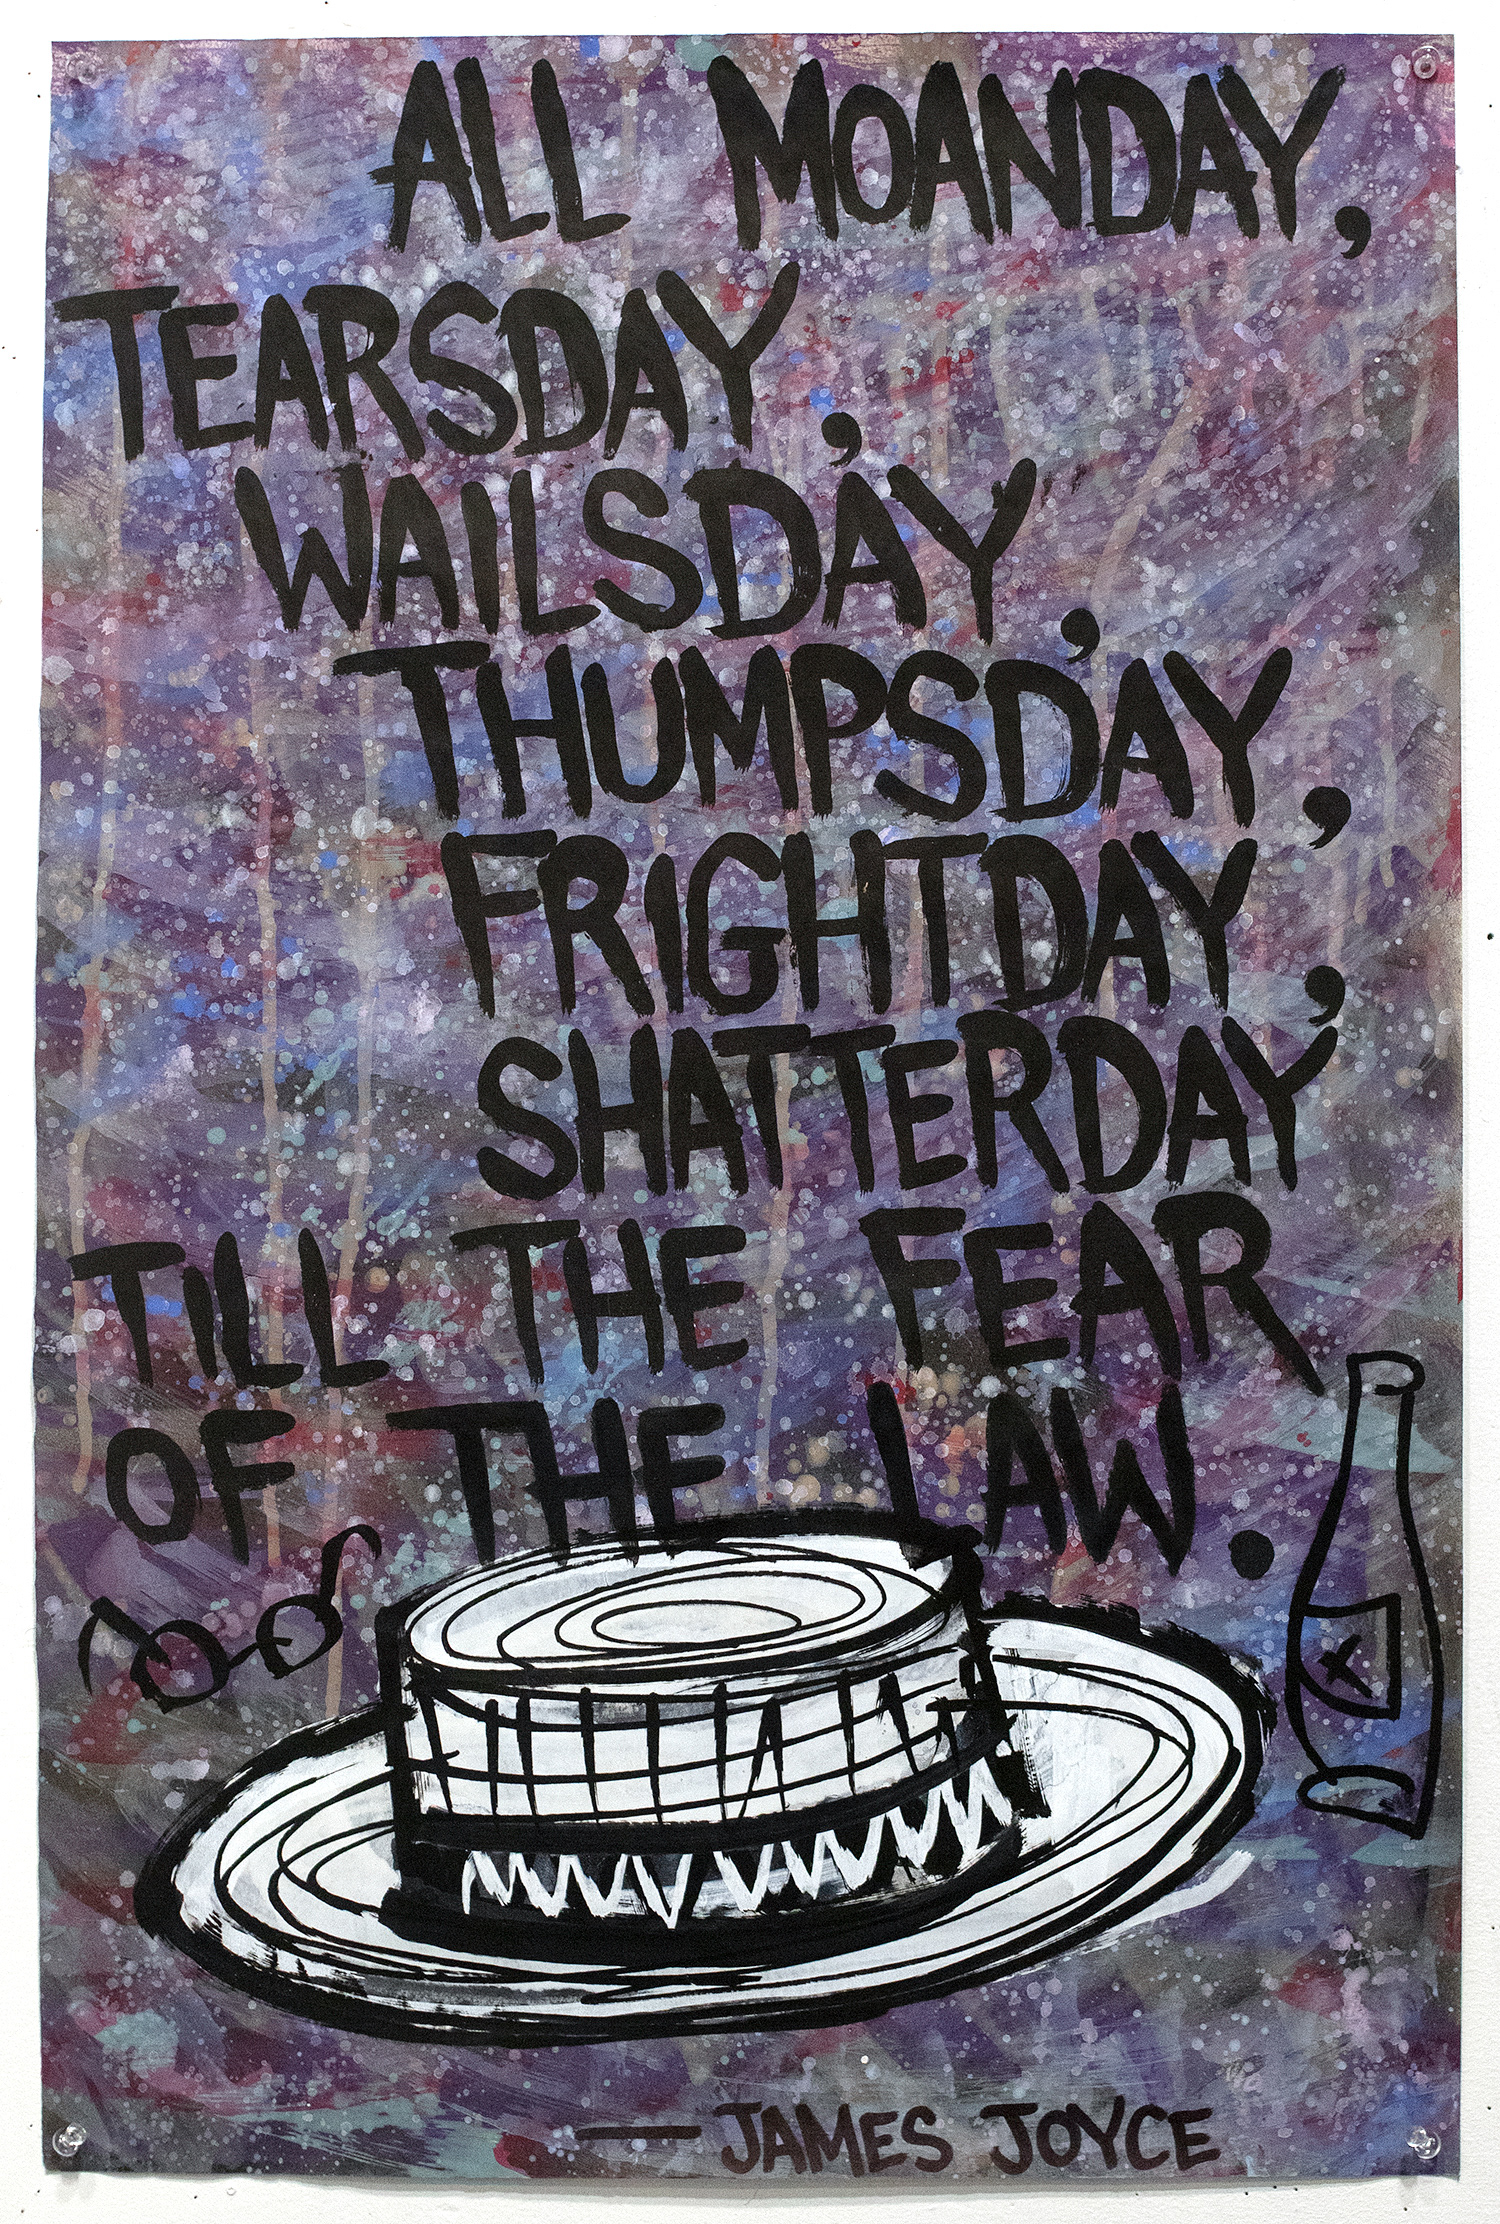 ALL MOANDAY,
TEARSDAY,
WAILSDAY,
THUMPSDAY,
FRIGHTDAY,
SHATTERDAY
TILL THE FEAR
OF THE LAW.
X
— JAMES JOYCE